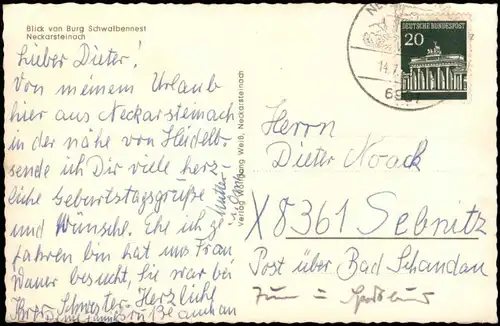 Blick von Burg Schwalbennest
Neckarsteinach
Lieber Dieter!
Von meinem Urlaub
hier aus Neckarsteinach
in der nähe von Heidelb.
sende ich Dir viele herz-
liche Geburtstagsgrüße
und Wünsche. Ehe ich ge
fahren bin hat uns Frau
besucht, Sie war bei
Ihrer Schwester. Herzliche
Mutter
Verlag Wolfgang Weiß, Neckarsteinach
DEUTSCHE BUNDESPOST
20
14.7.
Herrn
Dieter Noack
X 8361 Sebnitz
Post über Bad Schandau